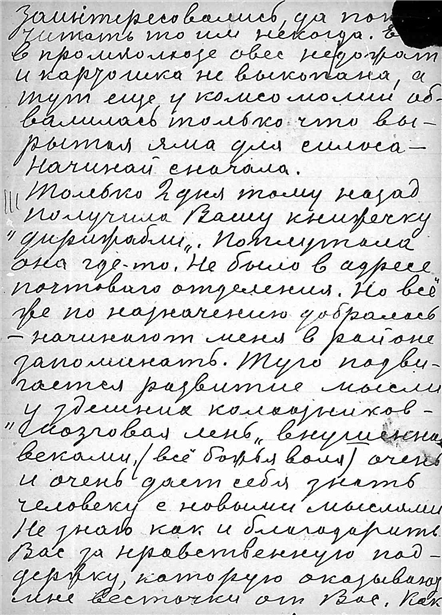 Заинтересовались, да по
читать то им некогда. В
в промколхозе овес недожат
и картошка не выкопана, а
тут еще у комсомолии об
валилась только что вы-
рытая яма для силоса –
начинай сначала.
Только 2 дня тому назад
получила Вашу книжечку
"дирижабли". Поплутала
она где-то. Не было в адресе
почтоваго отделения. Но всё
же по назначению добралась
– начинают меня в районе
запоминать. Туго подви-
гается развитие мысли
у здешних колхозников –
"мозговая лень" внушенная
веками, (всё божья воля) очень
и очень дает себя знать
человеку с новыми мыслями
Не знаю как и благодарить
Вас за нравственную под-
держку, которую оказывают
мне весточки от Вас. Как